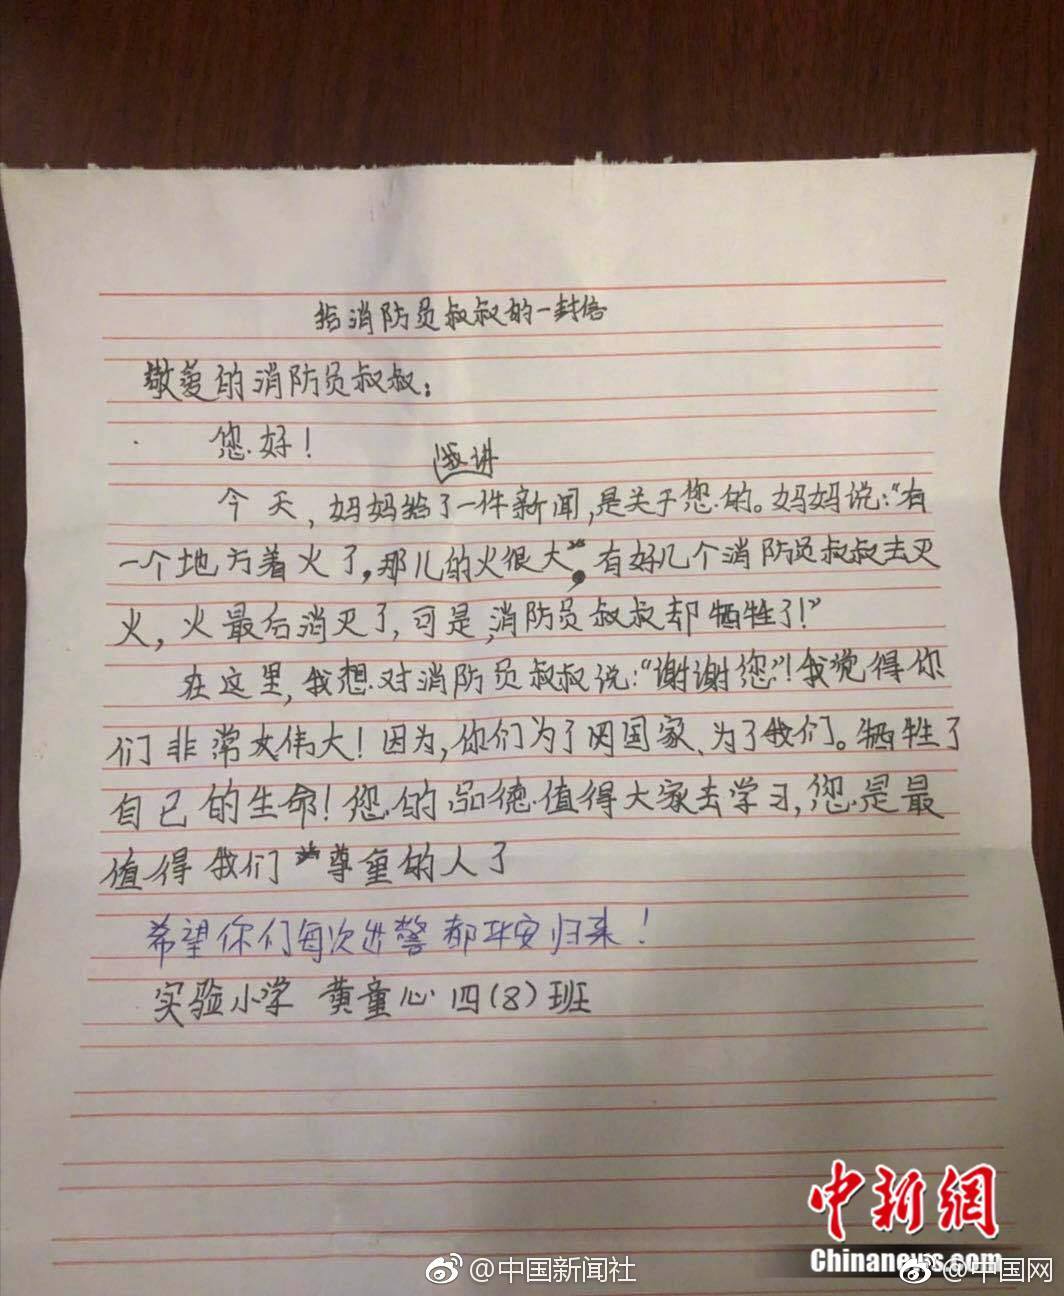 给消防员叔叔的一封信
敬爱的消防员叔叔：
您好！
我讲
今天，妈妈给了一件新闻，是关于您的。妈妈说：“有
一个地方着火了，那儿的火很大，有好几个消防员叔叔去灭
火，火最后消灭了，可是，消防员叔叔却牺牲了！”
在这里，我想对消防员叔叔说：“谢谢您”！我觉得你
们非常伟大！因为，你们为了国家、为了我们。牺牲了
自己的生命！您的品德值得大家去学习，您是最
值得我们尊重的人了
希望你们每次出警都平安归来！
实验小学 黄童心 四（8）班
中新網
Chinanews.com
@中国新闻社
@中国网